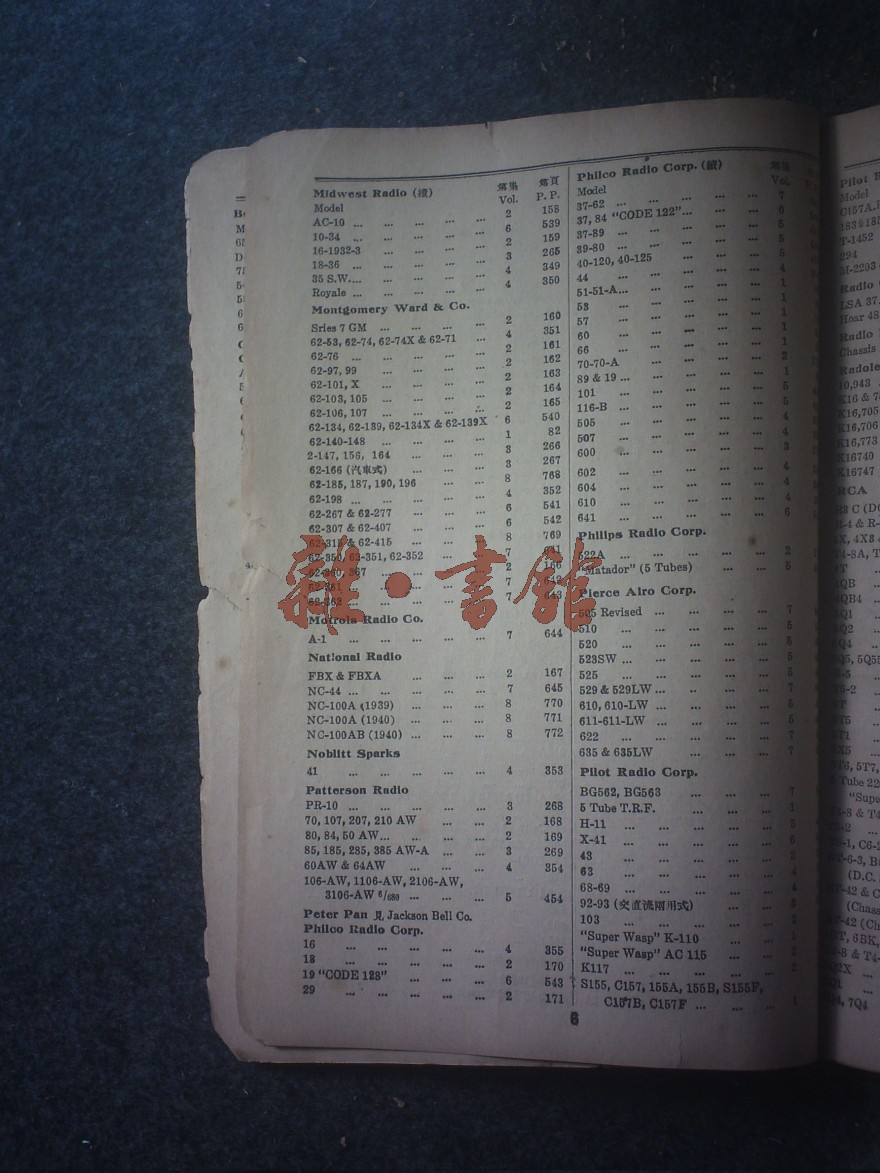 Midwest Radio (續)
Model
第集 第頁
Vol. P. P.
AC-10 ... ... ... ... ... 2 158
10-34 ... ... ... ... ... 6 539
16-1932-3 ... ... ... ... 2 159
18-36 ... ... ... ... ... 3 265
35 S.W.... ... ... ... ... 4 349
Royale ... ... ... ... ... 4 350
Montgomery Ward & Co.
Sries 7 GM ... ... ... ... 2 160
62-53, 62-74, 62-74X & 62-71 ... 4 351
62-76 ... ... ... ... ... 2 161
62-97, 99 ... ... ... ... 2 162
62-101, X ... ... ... ... 2 163
62-103, 105 ... ... ... ... 2 164
62-106, 107 ... ... ... ... 2 165
62-134, 62-139, 62-134X & 62-139X 6 540
62-140-148 ... ... ... ... 1 82
2-147, 156, 164 ... ... ... 3 266
62-166 (汽車式) ... ... ... 3 267
62-185, 187, 190, 196 ... ... 8 768
62-198 ... ... ... ... ... 4 352
62-267 & 62-277 ... ... ... 6 541
62-307 & 62-407 ... ... ... 6 542
62-315 & 62-415 ... ... ... 8 769
62-350, 62-351, 62-352 ... ... 7 641
62-360, 367 ... ... ... ... 2 166
62-361 ... ... ... ... ... 7 642
62-362 ... ... ... ... ... 7 643
Motrola Radio Co.
A-1 ... ... ... ... ... 7 644
National Radio
FBX & FBXA ... ... ... 2 167
NC-44 ... ... ... ... ... 7 645
NC-100A (1939) ... ... ... 8 770
NC-100A (1940) ... ... ... 8 771
NC-100AB (1940) ... ... ... 8 772
Noblitt Sparks
41 ... ... ... ... ... 4 353
Patterson Radio
PR-10 ... ... ... ... ... 3 268
70, 107, 207, 210 AW ... ... 2 168
80, 84, 50 AW... ... ... ... 2 169
85, 185, 285, 385 AW-A ... ... 3 269
60AW & 64AW ... ... ... 4 354
106-AW, 1106-AW, 2106-AW,
3106-AW 6/680 ... ... ... 5 454
Peter Pan 見 Jackson Bell Co.
Philco Radio Corp.
16 ... ... ... ... ... 4 355
18 ... ... ... ... ... 2 170
19 "CODE 128" ... ... ... 6 543
29 ... ... ... ... ... 2 171
Philco Radio Corp. (續)
Model
Vol. P. P.
37-62 ... ... ... ... ... 7
37, 84 "CODE 122"... ... ... 6
37-89 ... ... ... ... ... 5
39-80 ... ... ... ... ... 5
40-120, 40-125 ... ... ... 5
44 ... ... ... ... ... 4
51-51-A... ... ... ... ... 1
53 ... ... ... ... ... 1
57 ... ... ... ... ... 1
60 ... ... ... ... ... 1
66 ... ... ... ... ... 1
70-70-A ... ... ... ... 2
89 & 19 ... ... ... ... ... 1
101 ... ... ... ... ... 5
116-B ... ... ... ... ... 5
505 ... ... ... ... ... 4
507 ... ... ... ... ... 4
600 ... ... ... ... ... 3
602 ... ... ... ... ... 4
604 ... ... ... ... ... 4
610 ... ... ... ... ... 4
641 ... ... ... ... ... 6
Philips Radio Corp.
522A ... ... ... ... ... 2
"Matador" (5 Tubes) ... ... 5
Pierce Alro Corp.
505 Revised ... ... ... ... 7
510 ... ... ... ... ... 5
520 ... ... ... ... ... 5
523SW ... ... ... ... ... 5
525 ... ... ... ... ... 5
529 & 529LW ... ... ... ... 7
610, 610-LW ... ... ... ... 5
611-611-LW ... ... ... ... 5
622 ... ... ... ... ... 7
635 & 635LW ... ... ... 7
Pilot Radio Corp.
BG562, BG563 ... ... ... 7
5 Tube T.R.F. ... ... ... 1
H-11 ... ... ... ... ... 5
X-41 ... ... ... ... ... 6
43 ... ... ... ... ... 2
63 ... ... ... ... ... 4
68-69 ... ... ... ... ... 4
92-93 (交直流兩用式) ... ... 3
103 ... ... ... ... ... 2
"Super Wasp" K-110 ... ... 1
"Super Wasp" AC 115 ... ... 2
K117 ... ... ... ... ... 2
S155, C157, 155A, 155B, S155F,
C157B, C157F ... ... ... 1
6
雜·書館
Model
C157A.
T-1452
294
M-2203
LSA 37.
Hoar 48
Chassis
Radole
10,943
K16 & 7
K16,705
K16,706
K16,773
K16740
K16747
RCA
"Super
(D.C.
(Chass
7Q4